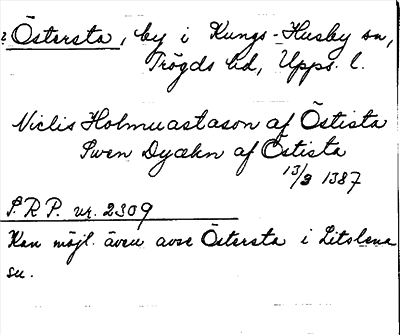 ? Östersta, by i Kungs-Husby sn,
Trögds hd, Upps. l.
Niclis Holmuastason af Östista
Swen Dyækn af Östista
13/3 1387
S.R.P. nr. 2309
Kan möjl. även avse Östersta i Litslena
sn.